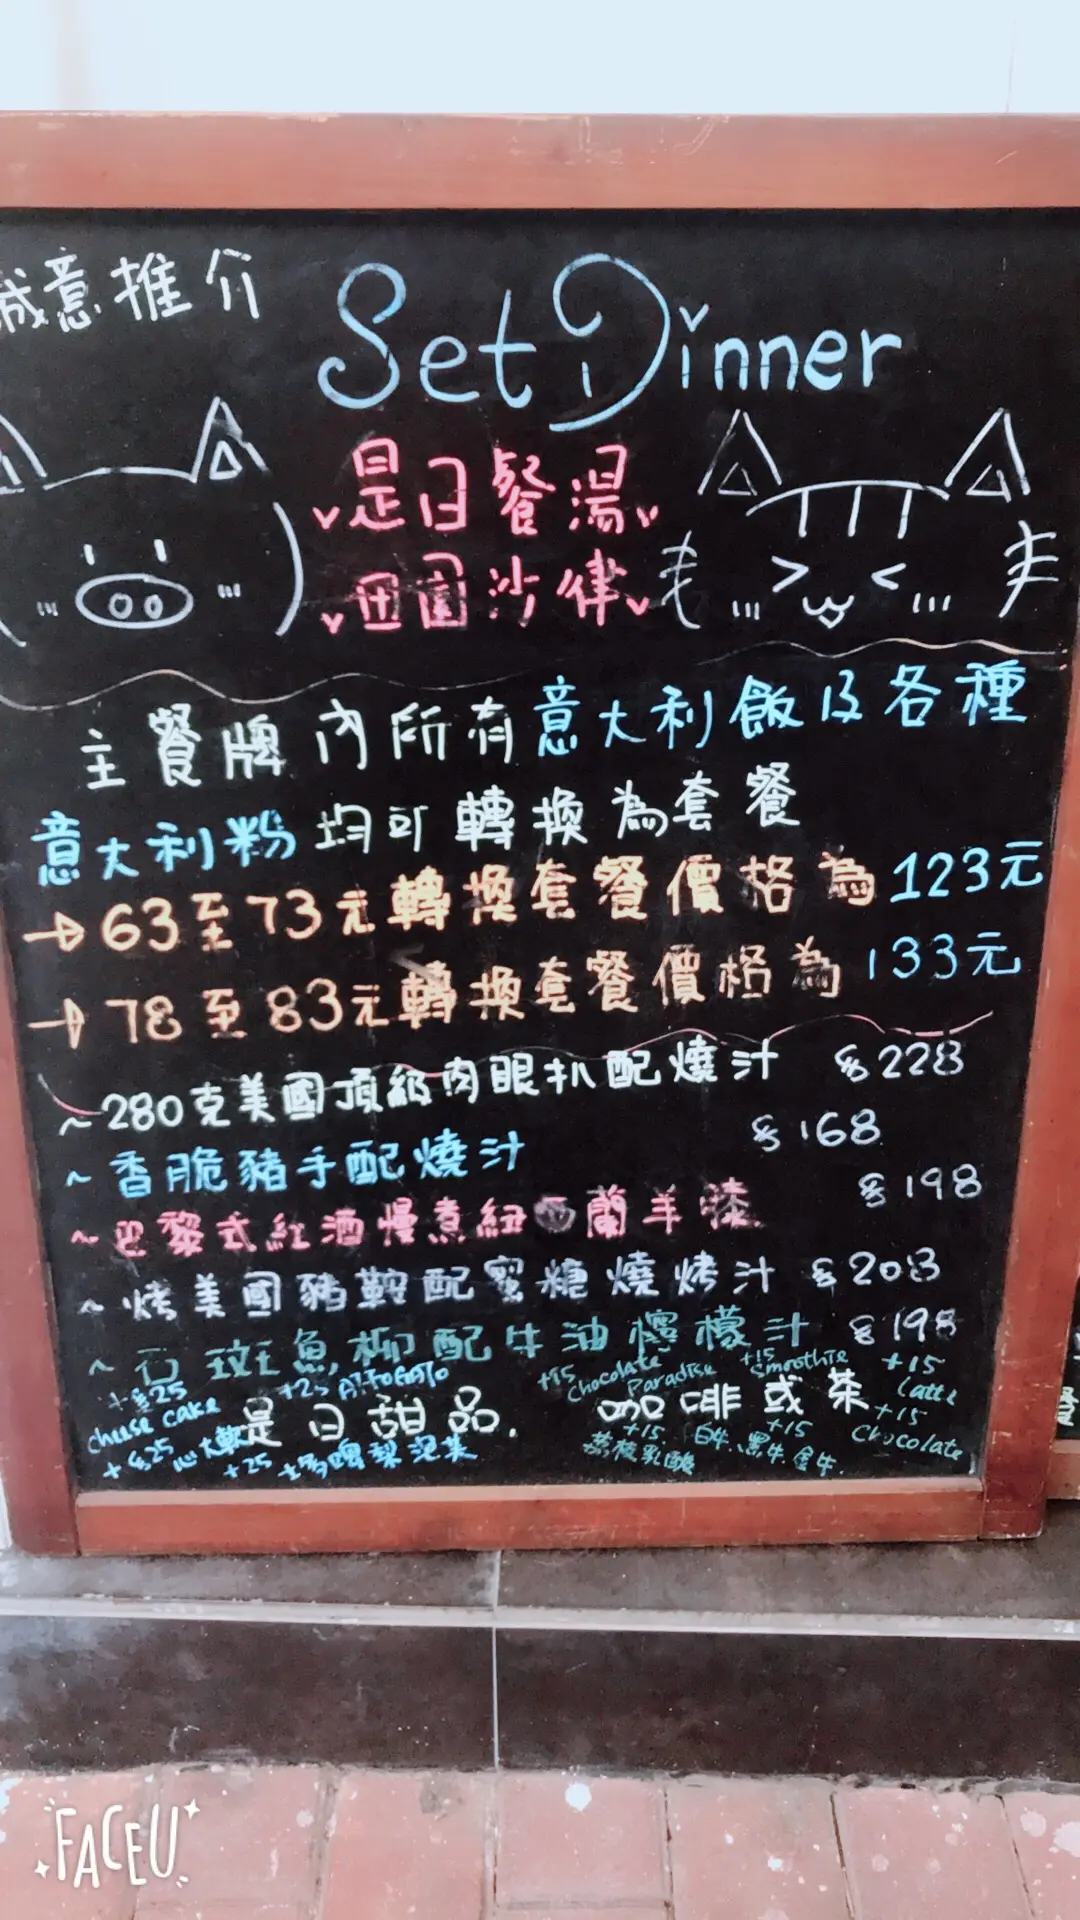 誠意推介
Set Dinner
是日餐湯
田園沙律
主餐牌內所有意大利飯及各種
意大利粉均可轉換為套餐
→63至73元轉換套餐價格為 123元
→78至83元轉換套餐價格為 133元
~280克美國頂級肉眼扒配燒汁 $228
~香脆豬手配燒汁 $168
~巴黎式紅酒慢煮紐西蘭羊膝 $198
~烤美國豬鞍配蜜糖燒烤汁 $208
~石斑魚柳配牛油檸檬汁 $198
+$25 cheese cake
+25 AFFOGATO
+15 Chocolate Paradise
+15 Smoothie
+15 Latte
是日甜品.
咖啡或茶
+15 Chocolate
+$25 心太軟
+25
+15
乳酸
+15
白牛.黑牛.金牛.
FACEU